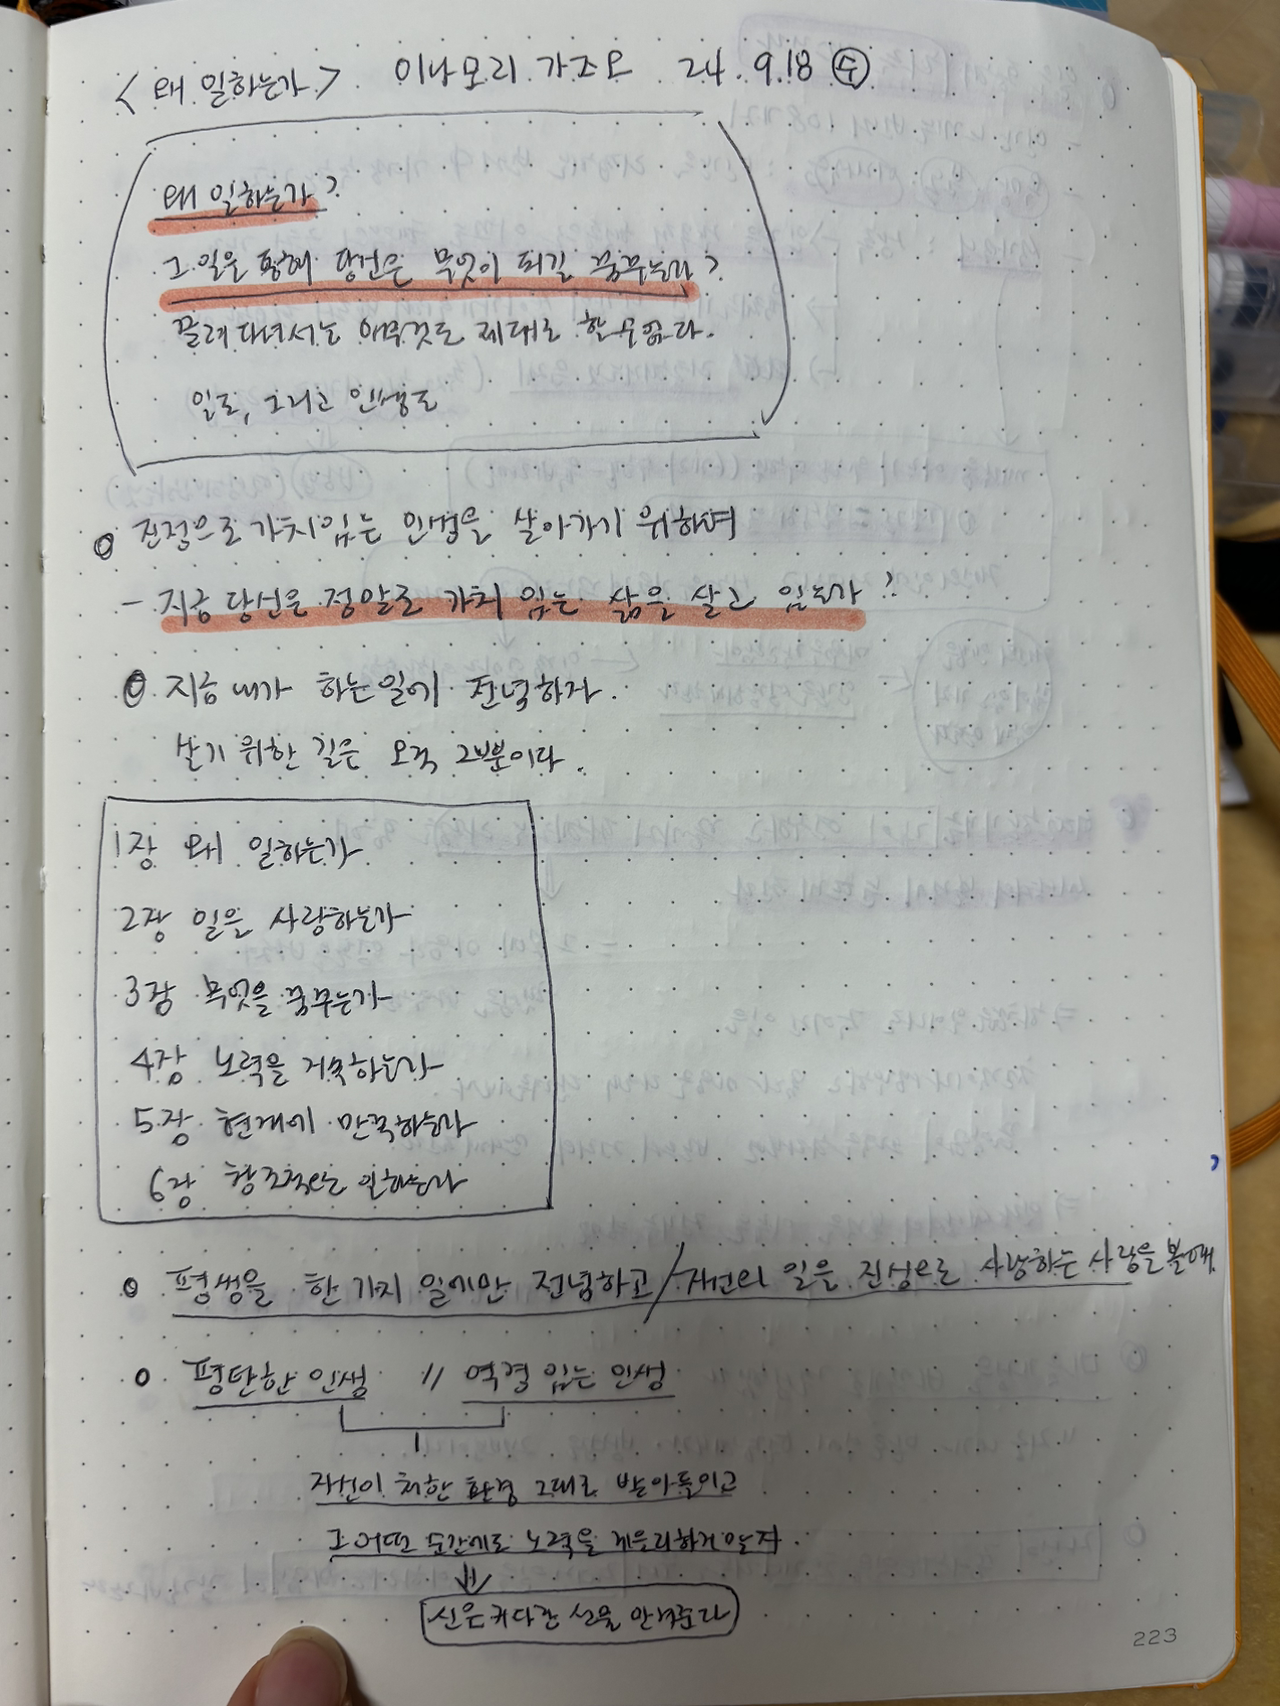 <왜 일하는가> 이나모리 가즈오 24. 9. 18 ㊌
왜 일하는가?
그 일을 통해 당신은 무엇이 되길 꿈꾸는가?
끌려 다녀서는 아무것도 제대로 할 수 없다.
일도, 그리고 인생도
진정으로 가치있는 인생을 살아가기 위하여
- 지금 당신은 정말로 가치 있는 삶을 살고 있는가?
지금 내가 하는 일에 전념하자.
살기 위한 길은 오직 그뿐이다.
1장 왜 일하는가
2장 일을 사랑하는가
3장 무엇을 꿈꾸는가
4장 노력을 지속하는가
5장 현재에 만족하는가
6장 창조적으로 일하는가
평생을 한 가지 일에만 전념하고 / 자신의 일을 진심으로 사랑하는 사람을 볼 때
평탄한 인생 // 역경 있는 인생
자신이 처한 환경 그대로 받아들이고
그 어떤 순간에도 노력을 게을리하지 않자.
신은 커다란 선물 안겨준다
223